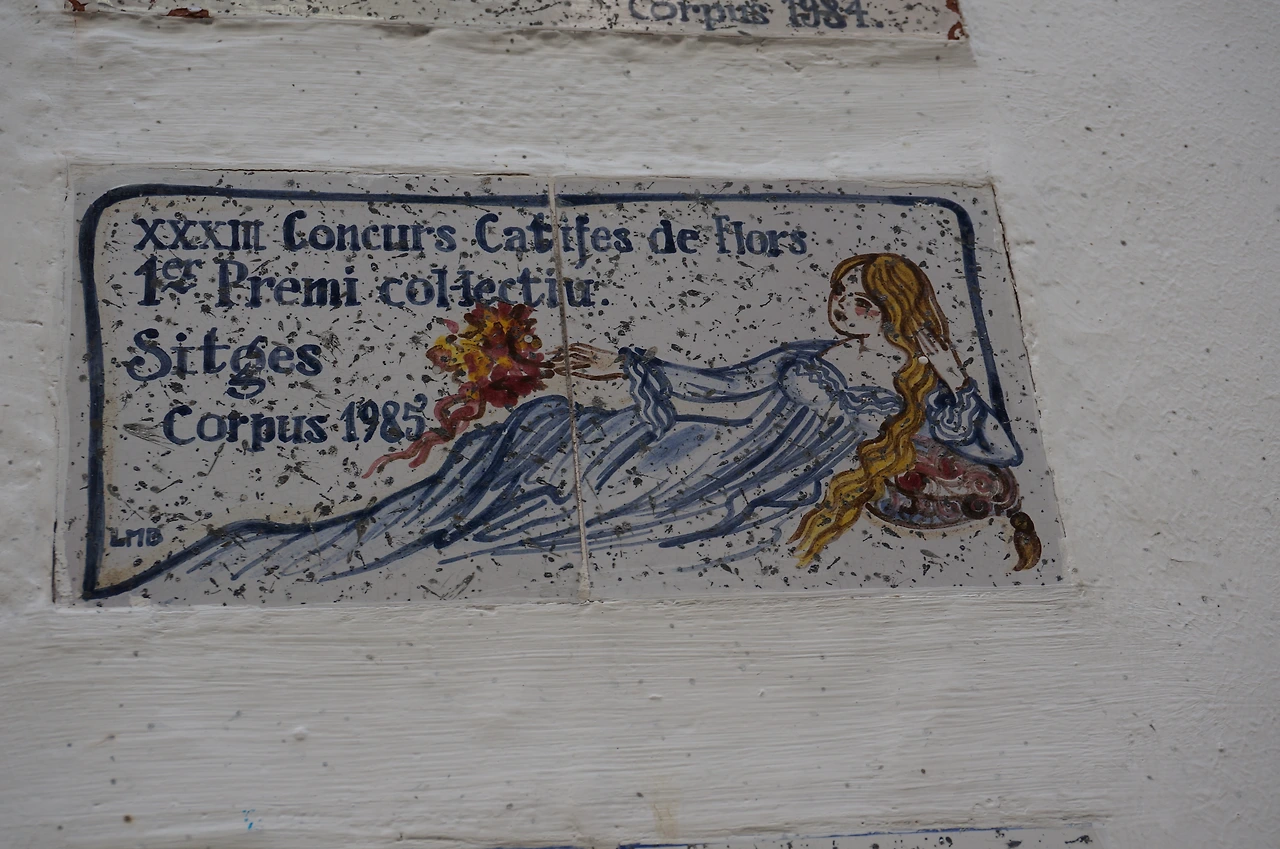 Corpus 1984.
XXXIII Concurs Catifes de Flors
1er Premi col·lectiu.
Sitges
Corpus 1985
LMB